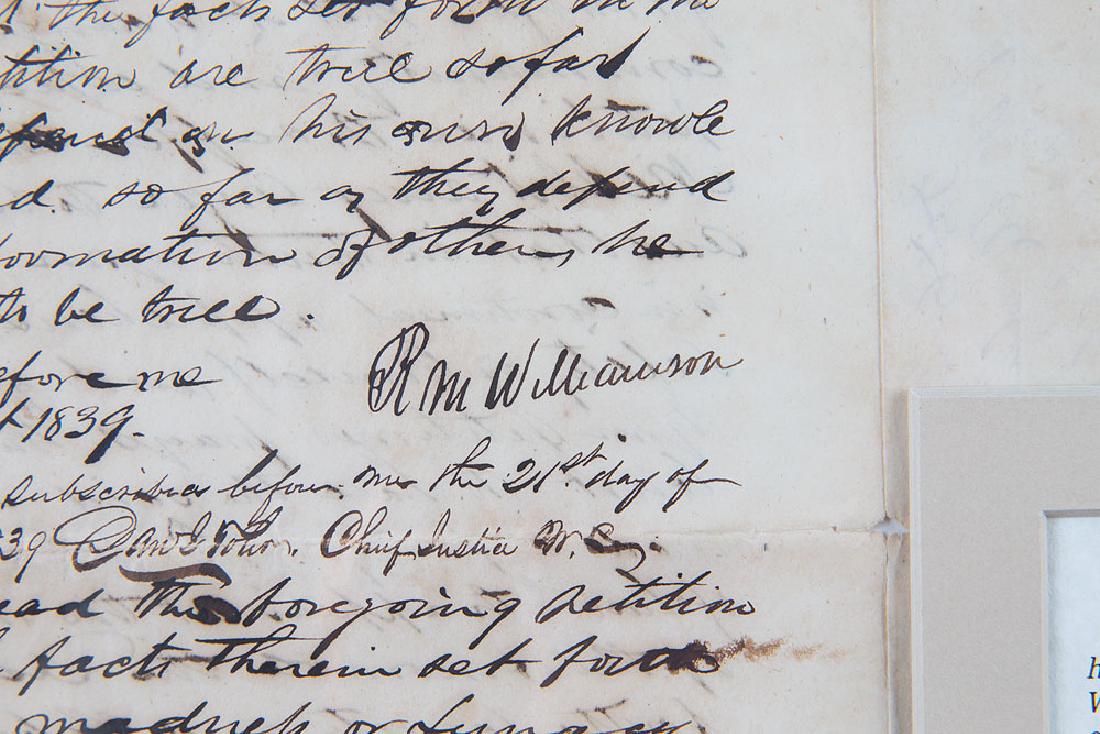 the facts set forth in the
tition are true so far
on his own knowle
d. so far as they depend
formation of others, he
to be true.
efore me
R M Williamson
t 1839.
subscribed before me the 21st day of
39 Chief Justice W. Co.
ead the foregoing petition
facts therein set forth
madness or Lunacy
h
V